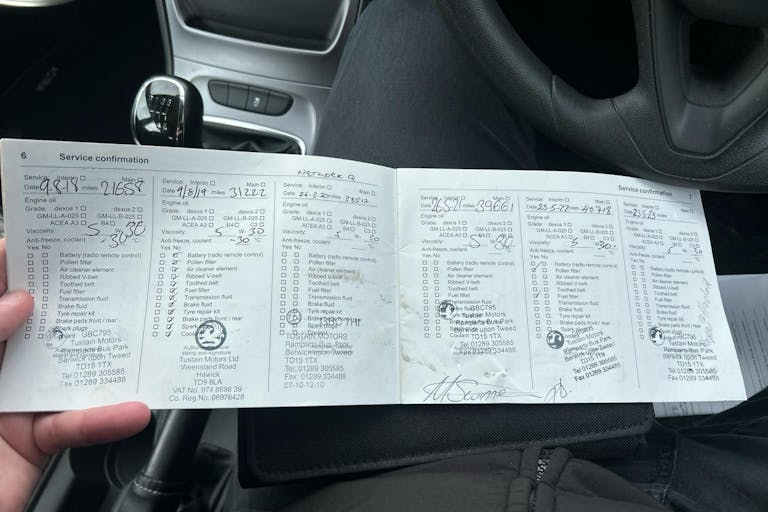 6 Service confirmation
Service: Interim Main
Date 9.8.18 miles 21658
Engine oil
Grade: dexos 1 dexos 2
GM-LL-A-025 GM-LL-B-025
ACEA A3 B4
Viscosity: 5 W 30
Anti-freeze, coolant -30 °C
Yes No
Battery (radio remote control)
Pollen filter
Air cleaner element
Ribbed V-belt
Toothed belt
Fuel filter
Transmission fluid
Brake fluid
Tyre repair kit
Brake pads front / rear
Spark plugs
GBC795
Tustan Motors
Ramparts Bus Park
Berwick upon Tweed
TD15 1TX
Tel 01289 305585
Fax 01289 334488
Service: Interim Main
Date 9/8/19 miles 31222
Engine oil
Grade: dexos 1 dexos 2
GM-LL-A-025 GM-LL-B-025
ACEA A3 B4
Viscosity: 5 W 30
Anti-freeze, coolant -30 °C
Yes No
Battery (radio remote control)
Pollen filter
Air cleaner element
Ribbed V-belt
Toothed belt
Fuel filter
Transmission fluid
Brake fluid
Tyre repair kit
Brake pads front / rear
stamp and signature
Tustain Motors Ltd
Weensland Road
Hawick
TD9 8LA
VAT No. 974 8698 39
Co. Reg No. 06976428
NETWORK Q
Service: Interim Main
Date miles 33512
Engine oil
Grade: dexos 1 dexos 2
GM-LL-A-025 GM-LL-B-025
ACEA A3 B4
Viscosity:
Anti-freeze, coolant
Yes No
Battery (radio remote control)
Pollen filter
Air cleaner element
Ribbed V-belt
Toothed belt
Fuel filter
Transmission fluid
Brake fluid
Tyre repair kit
Brake pads front / rear
TUSTAIN MOTORS
Ramparts Bus Park
Berwick upon Tweed
TD15 1TX
Tel: 01289 305585
Fax: 01289 334488
07-10-12-10
Service confirmation 7
Service: Interim Main
Date miles 39661
Engine oil
Grade: dexos 1 dexos 2
GM-LL-A-025 GM-LL-B-025
ACEA A3 B4
Viscosity: 5 W 30
Anti-freeze, coolant
Yes No
Battery (radio remote control)
Pollen filter
Air cleaner element
Ribbed V-belt
Toothed belt
Fuel filter
Transmission fluid
Brake fluid
Tyre repair kit
GBC795
Tustain Motors
Ramparts Bus Park
Berwick upon Tweed
TD15 1TX
Tel 01289 305585
Fax 01289 334488
Service: Interim Main
Date 25-5-22 miles 40718
Engine oil
Grade: dexos 1 dexos 2
GM-LL-A-025 GM-LL-B-025
ACEA A3 B4
Viscosity: 5 W 30
Anti-freeze, coolant
Yes No
Battery (radio remote control)
Pollen filter
Air cleaner element
Ribbed V-belt
Toothed belt
Fuel filter
Transmission fluid
Brake fluid
Tyre repair kit
Brake pads front / rear
GBC795
Tustain Motors
Ramparts Bus Park
Berwick upon Tweed
TD15 1TX
Tel 01289 305585
Fax 01289 334488
Service: Interim Main
Date miles
Engine oil
Grade: dexos 1 dexos 2
GM-LL-A-025 GM-LL-B-025
ACEA A3 B4
Viscosity:
Anti-freeze, coolant
Yes No
Battery (radio remote control)
Pollen filter
Air cleaner element
Ribbed V-belt
Toothed belt
Fuel filter
Transmission fluid
Brake fluid
Tyre repair kit
Brake pads front / rear
Tustain Motors
Ramparts Bus Park
Berwick upon Tweed
TD15 1TX
Tel 01289 305585
Fax 01289 334488